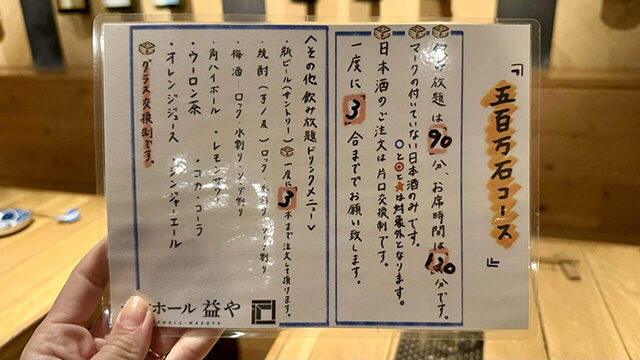 『五百万石コース』
飲み放題は「90」分、お席時間は120分です。
マークの付いていない日本酒のみです。
○と◎と★は対象外となります。
日本酒のご注文は片口交換制です。
一度に「3」合まででお願い致します。
<その他 飲み放題ドリンクメニュー>
・瓶ビール(サントリー) 一度に「3」本まで注文して頂けます。
・焼酎(芋/麦) ロック
・梅酒・ロック・水割り・ソーダ割り
・角ハイボール
・ウーロン茶 ・コカ・コーラ
・オレンジジュース ・ジンジャーエール
グラス交換制です。
ホール 益や
HALL-MASUYA